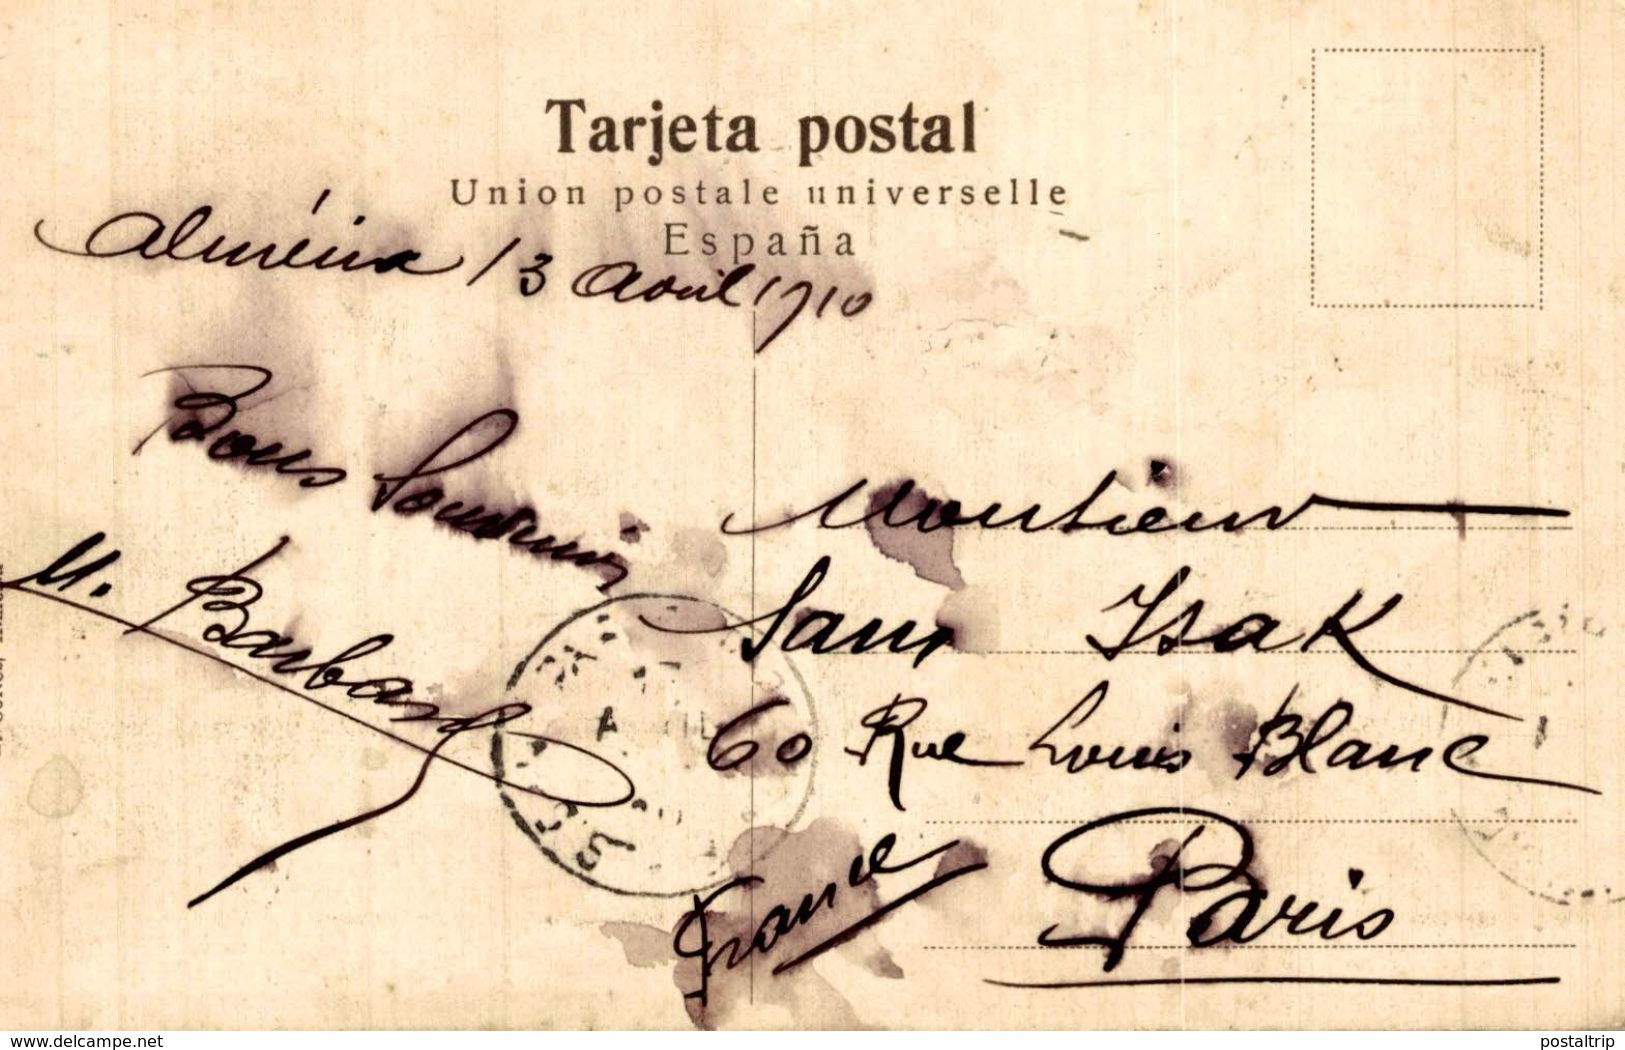 Tarjeta postal
Union postale universelle
España
Alméria 13 Avril 1910
Bons Souvenirs
M. Barbas
Monsieur
Sam Isak
60 Rue Louis Blanc
Paris
France
www.delcampe.net
postaltrip